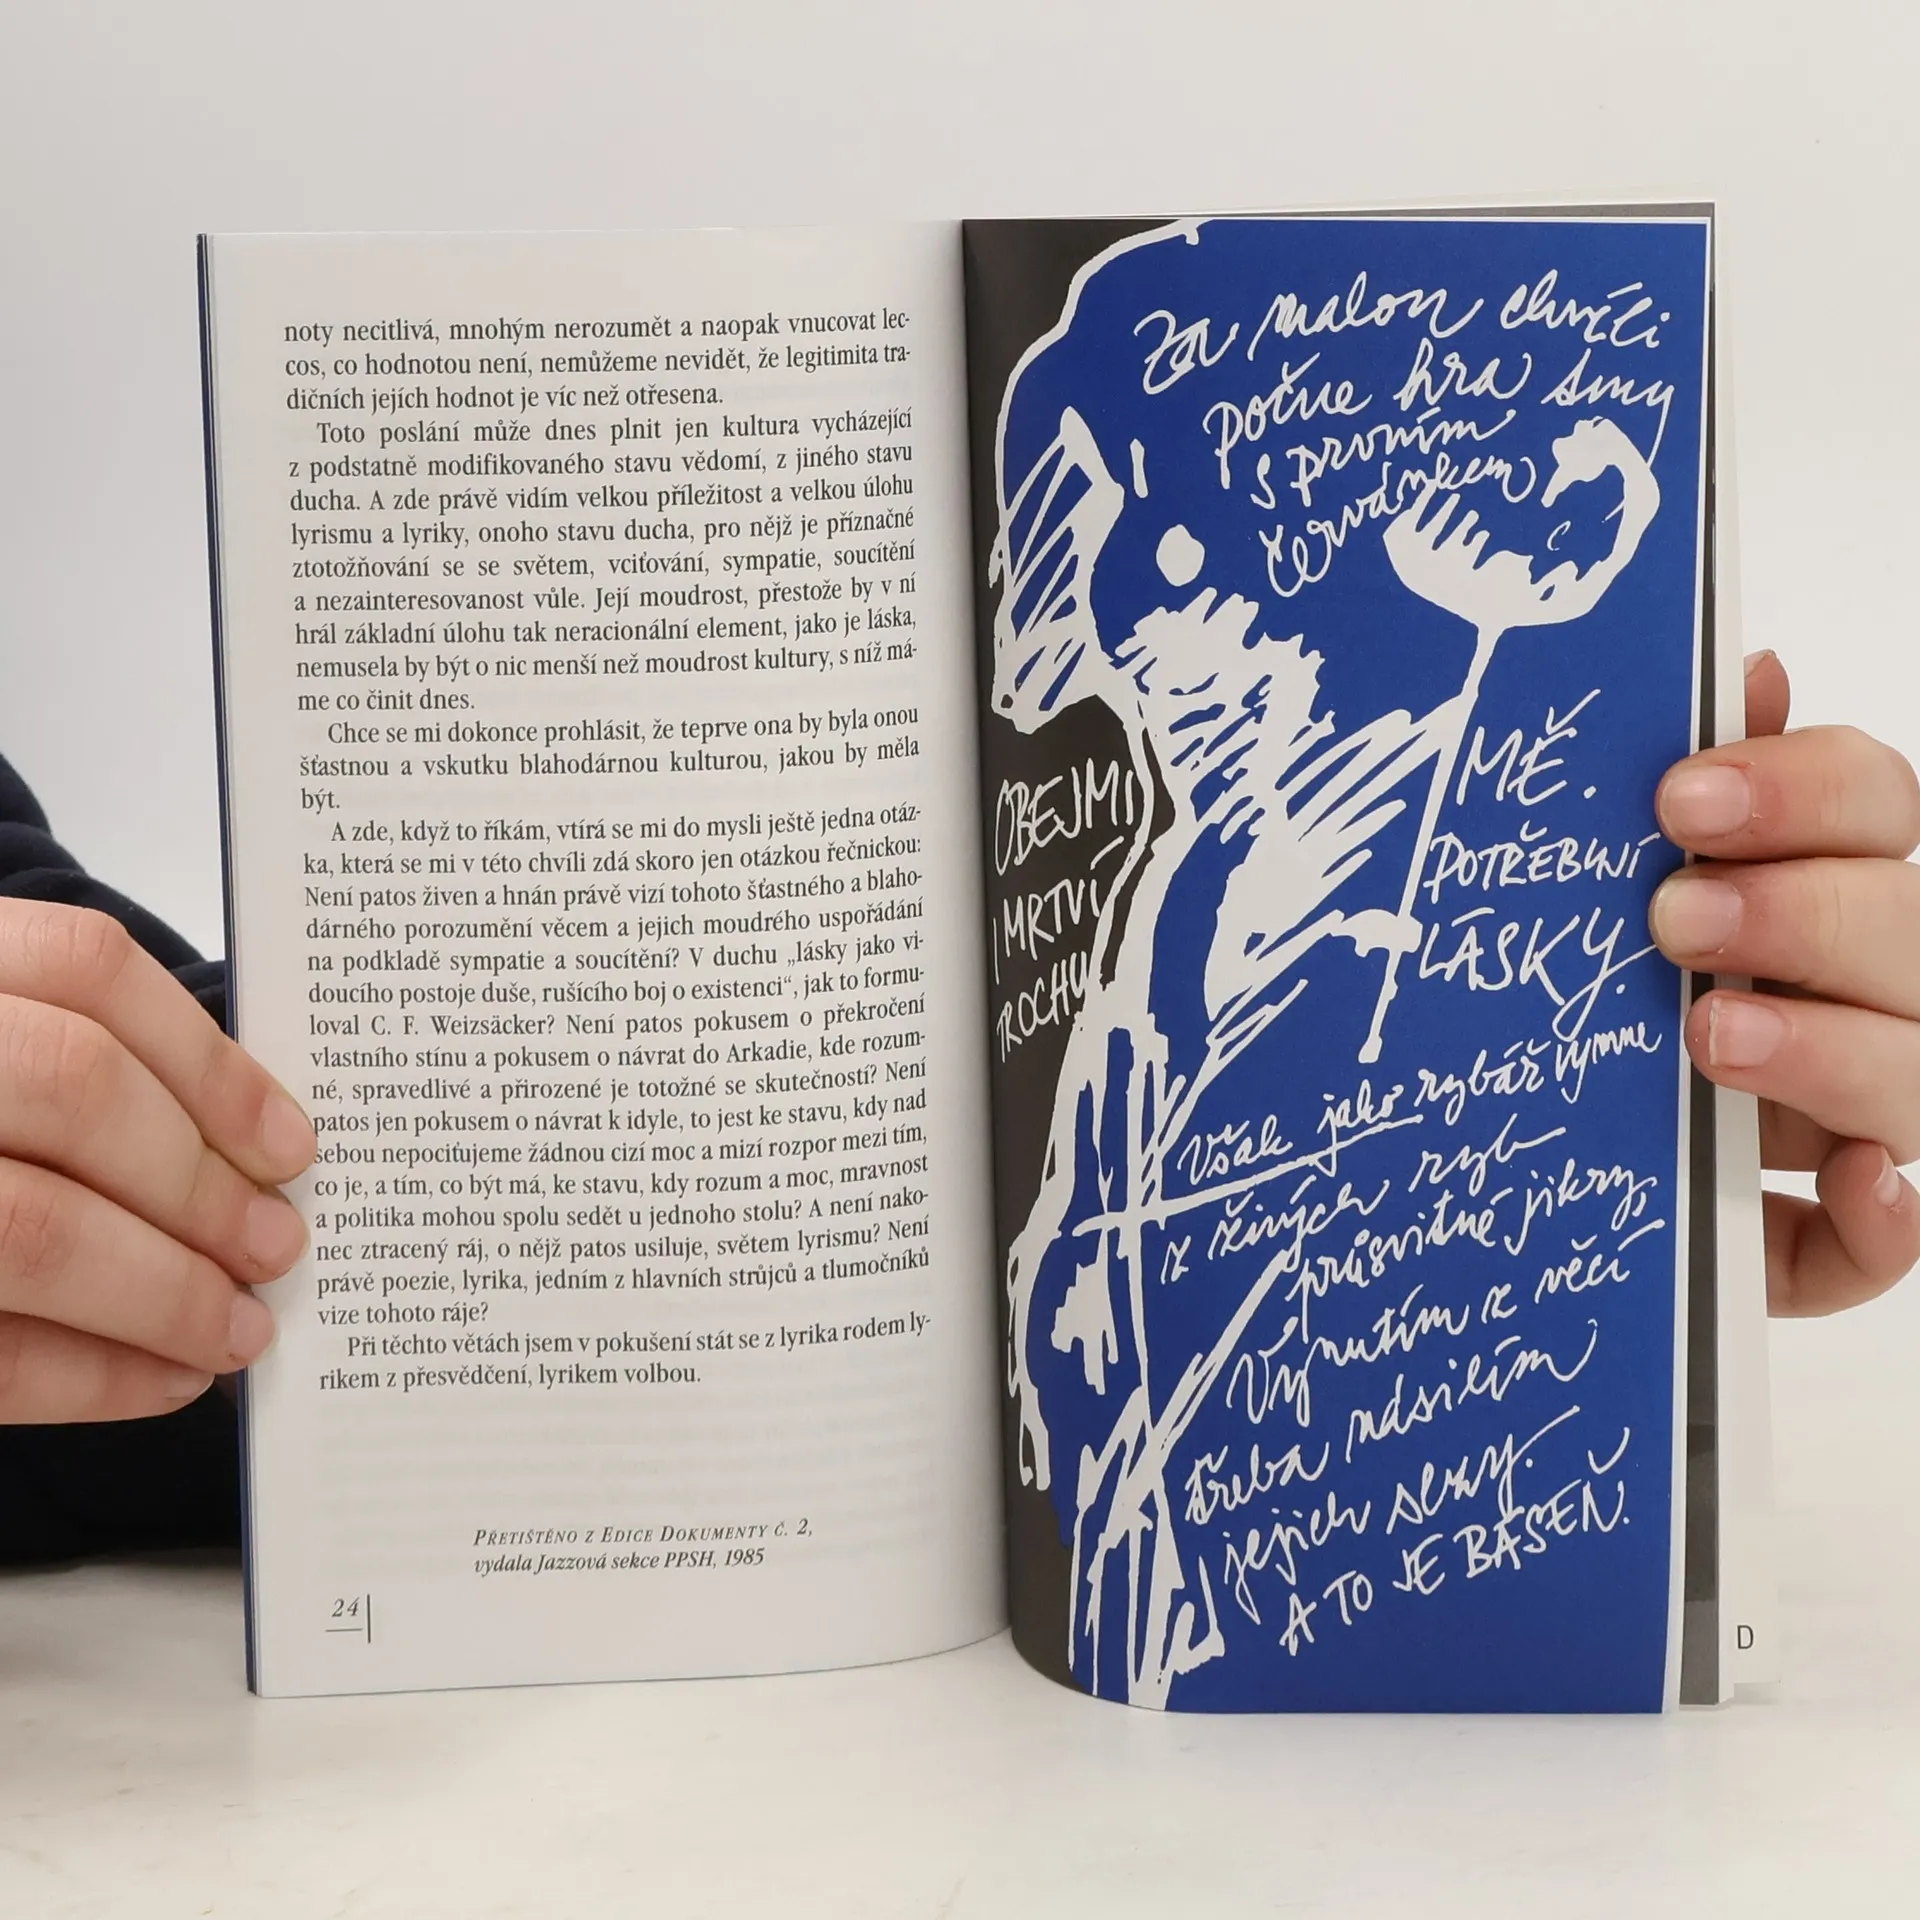 noty necitlivá, mnohým nerozumět a naopak vnucovat lec-
cos, co hodnotou není, nemůžeme nevidět, že legitimita tra-
dičních jejích hodnot je víc než otřesena.
Toto poslání může dnes plnit jen kultura vycházející
z podstatně modifikovaného stavu vědomí, z jiného stavu
ducha. A zde právě vidím velkou příležitost a velkou úlohu
lyrismu a lyriky, onoho stavu ducha, pro nějž je příznačné
ztotožňování se se světem, vciťování, sympatie, soucítění
a nezainteresovanost vůle. Její moudrost, přestože by v ní
hrál základní úlohu tak neracionální element, jako je láska,
nemusela by být o nic menší než moudrost kultury, s níž má-
me co činit dnes.
Chce se mi dokonce prohlásit, že teprve ona by byla onou
šťastnou a vskutku blahodárnou kulturou, jakou by měla
být.
A zde, když to říkám, vtírá se mi do mysli ještě jedna otáz-
ka, která se mi v této chvíli zdá skoro jen otázkou řečnickou:
Není patos živen a hnán právě vizí tohoto šťastného a blaho-
dárného porozumění věcem a jejich moudrého uspořádání
na podkladě sympatie a soucítění? V duchu „lásky jako vi-
doucího postoje duše, rušícího boj o existenci“, jak to formu-
loval C. F. Weizsäcker? Není patos pokusem o překročení
vlastního stínu a pokusem o návrat do Arkadie, kde rozum-
né, spravedlivé a přirozené je totožné se skutečností? Není
patos jen pokusem o návrat k idyle, to jest ke stavu, kdy nad
sebou nepociťujeme žádnou cizí moc a mizí rozpor mezi tím,
co je, a tím, co být má, ke stavu, kdy rozum a moc, mravnost
a politika mohou spolu sedět u jednoho stolu? A není nako-
nec ztracený ráj, o nějž patos usiluje, světem lyrismu? Není
právě poezie, lyrika, jedním z hlavních strůjců a tlumočníků
vize tohoto ráje?
Při těchto větách jsem v pokušení stát se z lyrika rodem ly-
rikem z přesvědčení, lyrikem volbou.
PŘETIŠTĚNO Z EDICE DOKUMENTY Č. 2,
vydala Jazzová sekce PPSH, 1985
24
Za malou chvíli
počne hra tmy
s prvním
červánkem
OBEJMI
I MRTVÍ
TROCHU
MĚ.
POTŘEBUJÍ
LÁSKY.
Však jako rybář vymne
z živých ryb
průsvitné jikry,
Vynutím z věcí
třeba násilím
jejich slzy.
A TO JE BÁSEŇ.
D